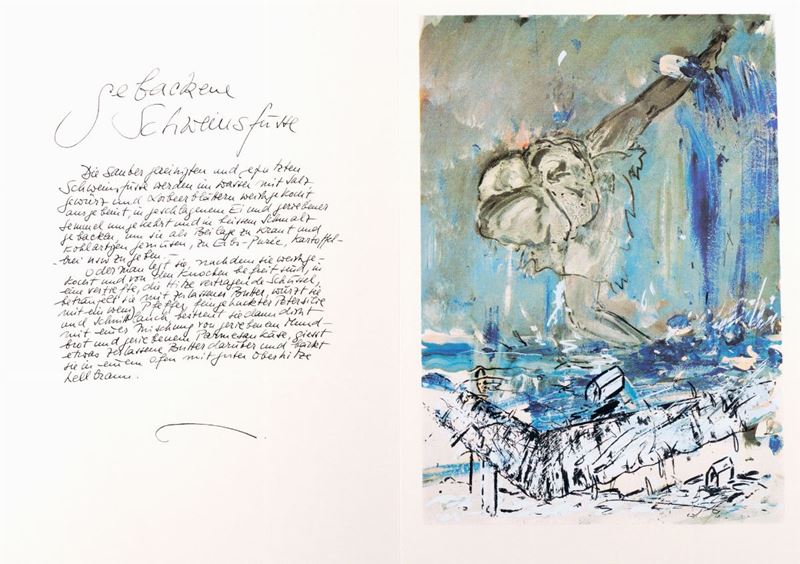 gebackene
Schweinsfüsse
Die sauber gereinigten und geputzten
Schweinsfüsse werden im Wasser mit Salz
gewürz und Lorbeerblättern weichgekocht
ausgebeint, in geschlagenem Ei und geriebener
Semmel umgekehrt und in heissem Schmalz
gebacken, um sie als Beilage zu Kraut und
Kohlartigen gemüsen, zu Erbs-Purée, Kartoffel-
brei usw zu geben. –
Oder man legt sie, nachdem sie weichge-
kocht und von den Knochen befreit sind, in
eine vertiefte, die Hitze vertragende Schüssel,
beträufelt sie mit zerlassener Butter, würzt sie
mit ein wenig Pfeffer, feingehackter Petersilie
und Schnittlauch bestreut sie dann dicht
mit einer Mischung von geriebenem Mund-
brot und geriebenem Parmesankäse, giesst
etwas zerlassene Butter darüber und bäckt
sie in einem Ofen mit guter Oberhitze
hellbraun.